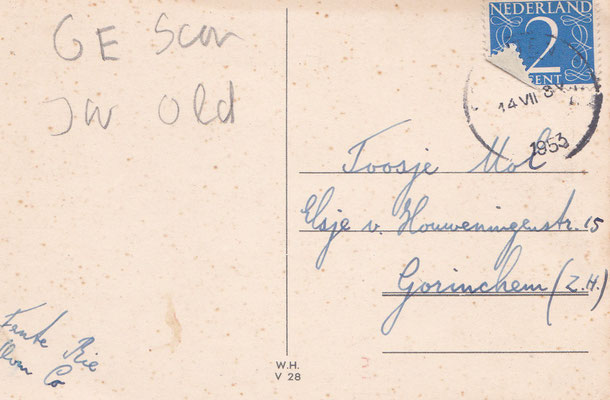 GE Scon
Jar Old
NEDERLAND
2
CENT
14 VII
1953
Toosje Mol
Elsje v. Houweningenstr. 15
Gorinchem (Z.H.)
Tante Rie
Oom Co
W.H.
V 28